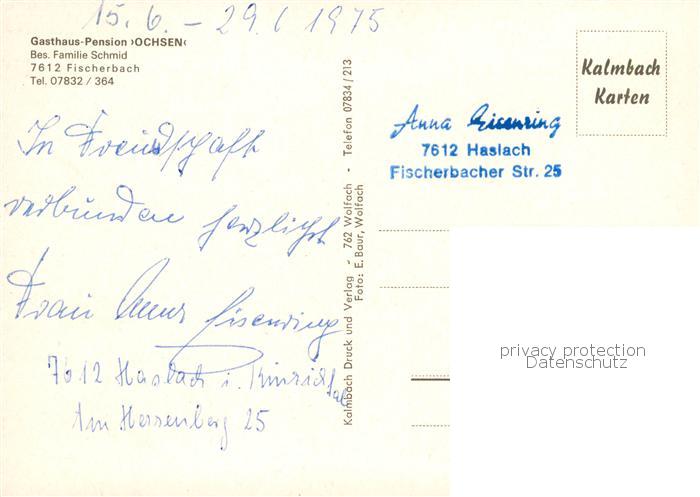 15. 6. - 29. 6 1975
Gasthaus-Pension ›OCHSEN‹
Bes. Familie Schmid
7612 Fischerbach
Tel. 07832 / 364
In Freundschaft
verbunden herzlichst
Frau Anna Eisenring
7612 Haslach i. Kinzigtal
Am Herrenberg 25
Kalmbach Druck und Verlag - 762 Wolfach - Telefon 07834 / 213
Foto: E. Baur, Wolfach
Kalmbach
Karten
Anna Eisenring
7612 Haslach
Fischerbacher Str. 25
privacy protection
Datenschutz